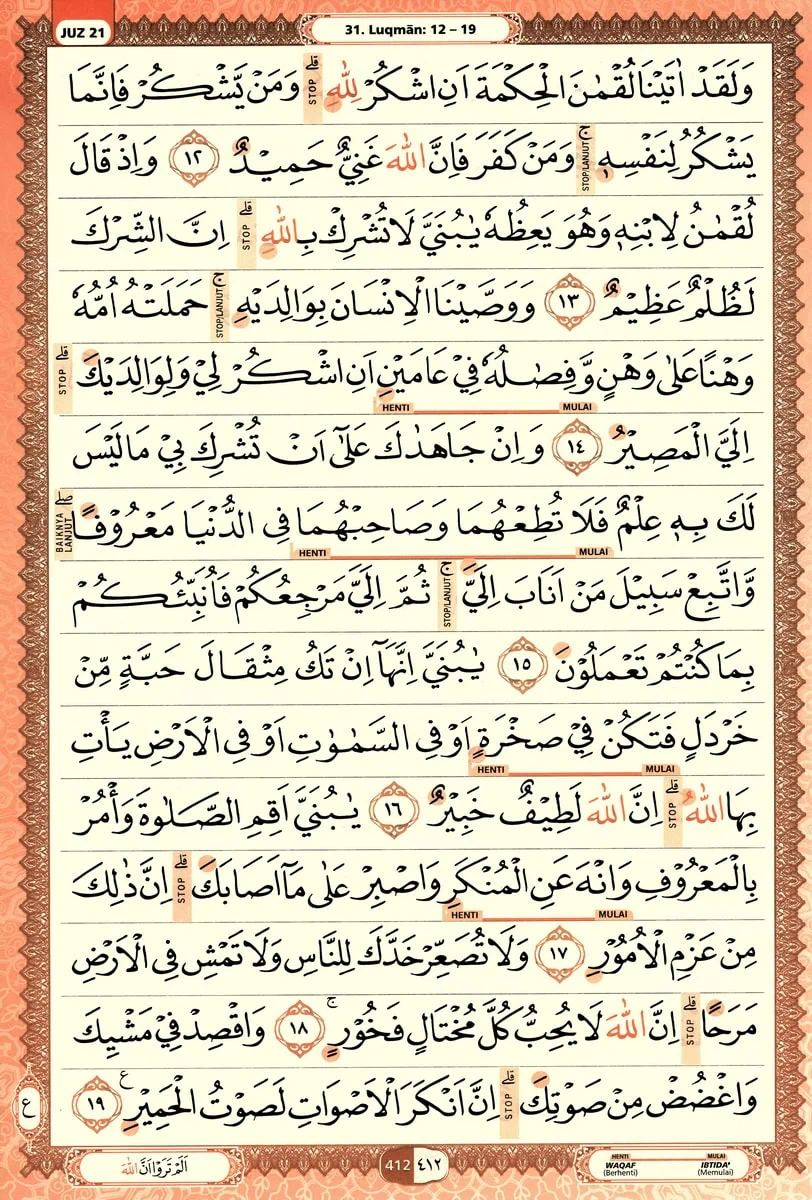 JUZ 21
31. Luqmān: 12 – 19
وَلَقَدْ اٰتَيْنَا لُقْمٰنَ الْحِكْمَةَ اَنِ اشْكُرْ لِلّٰهِ ۗ STOP وَمَنْ يَّشْكُرْ فَاِنَّمَا
يَشْكُرُ لِنَفْسِهٖ ۚ STOP/LANJUT وَمَنْ كَفَرَ فَاِنَّ اللّٰهَ غَنِيٌّ حَمِيْدٌ ١٢ وَاِذْ قَالَ
لُقْمٰنُ لِابْنِهٖ وَهُوَ يَعِظُهٗ يٰبُنَيَّ لَا تُشْرِكْ بِاللّٰهِ ۗ STOP اِنَّ الشِّرْكَ
لَظُلْمٌ عَظِيْمٌ ١٣ وَوَصَّيْنَا الْاِنْسَانَ بِوَالِدَيْهِ ۚ STOP/LANJUT حَمَلَتْهُ اُمُّهٗ
وَهْنًا عَلٰى وَهْنٍ وَّفِصٰلُهٗ فِيْ عَامَيْنِ اَنِ اشْكُرْ لِيْ وَلِوَالِدَيْكَ ۗ STOP
MULAI HENTI
اِلَيَّ الْمَصِيْرُ ١٤ وَاِنْ جَاهَدٰكَ عَلٰٓى اَنْ تُشْرِكَ بِيْ مَا لَيْسَ
لَكَ بِهٖ عِلْمٌ فَلَا تُطِعْهُمَا وَصَاحِبْهُمَا فِى الدُّنْيَا مَعْرُوْفًا ۖ BAIKNYA LANJUT
MULAI HENTI
وَّاتَّبِعْ سَبِيْلَ مَنْ اَنَابَ اِلَيَّ ۚ STOP/LANJUT ثُمَّ اِلَيَّ مَرْجِعُكُمْ فَاُنَبِّئُكُمْ
بِمَا كُنْتُمْ تَعْمَلُوْنَ ١٥ يٰبُنَيَّ اِنَّهَآ اِنْ تَكُ مِثْقَالَ حَبَّةٍ مِّنْ
خَرْدَلٍ فَتَكُنْ فِيْ صَخْرَةٍ اَوْ فِى السَّمٰوٰتِ اَوْ فِى الْاَرْضِ يَأْتِ
MULAI HENTI
بِهَا اللّٰهُ ۗ STOP اِنَّ اللّٰهَ لَطِيْفٌ خَبِيْرٌ ١٦ يٰبُنَيَّ اَقِمِ الصَّلٰوةَ وَأْمُرْ
بِالْمَعْرُوْفِ وَانْهَ عَنِ الْمُنْكَرِ وَاصْبِرْ عَلٰى مَآ اَصَابَكَ ۗ STOP اِنَّ ذٰلِكَ
MULAI HENTI
مِنْ عَزْمِ الْاُمُوْرِ ١٧ وَلَا تُصَعِّرْ خَدَّكَ لِلنَّاسِ وَلَا تَمْشِ فِى الْاَرْضِ
مَرَحًا ۗ STOP اِنَّ اللّٰهَ لَا يُحِبُّ كُلَّ مُخْتَالٍ فَخُوْرٍ ۚ ١٨ وَاقْصِدْ فِيْ مَشْيِكَ
وَاغْضُضْ مِنْ صَوْتِكَ ۗ STOP اِنَّ اَنْكَرَ الْاَصْوَاتِ لَصَوْتُ الْحَمِيْرِ ع ١٩
ع
اَلَمْ تَرَوْا اَنَّ اللّٰهَ
412 ٤١٢
HENTI MULAI
WAQAF IBTIDA'
(Berhenti) (Memulai)